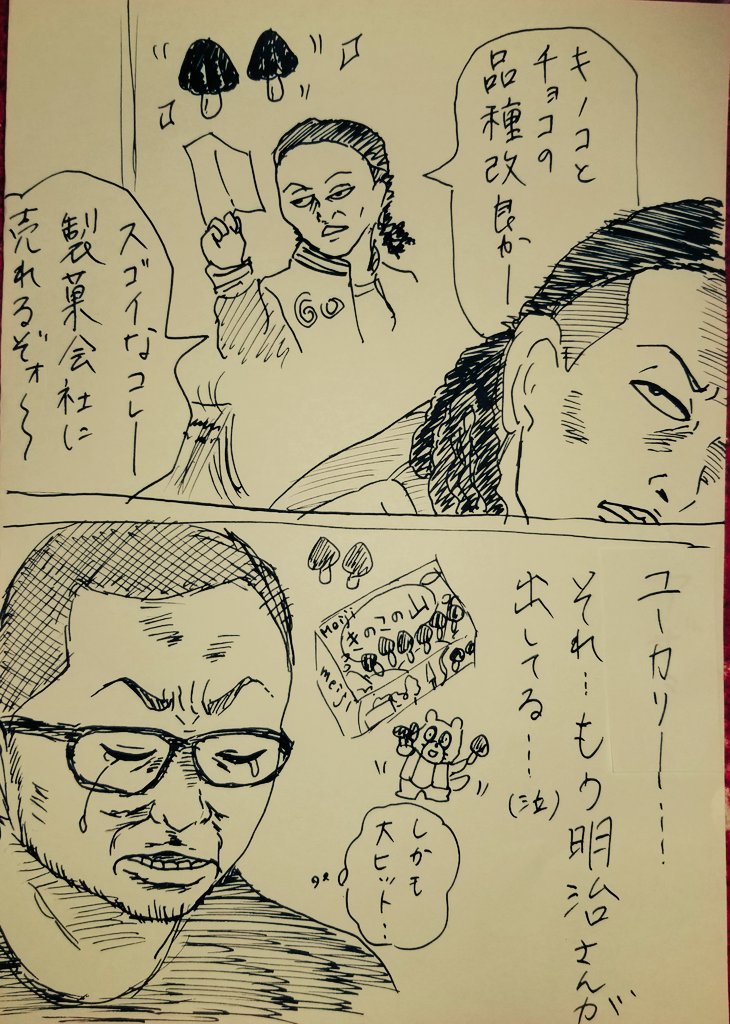 キノコと
チョコの
品種改良かー
GO
スゴイなコレー
製菓会社に
売れるぞォ〜〜
ユーカリー……
それ…もう明治さんが
出してる…
(泣)
meiji
きのこの山
meiji
しかも
大ヒット…